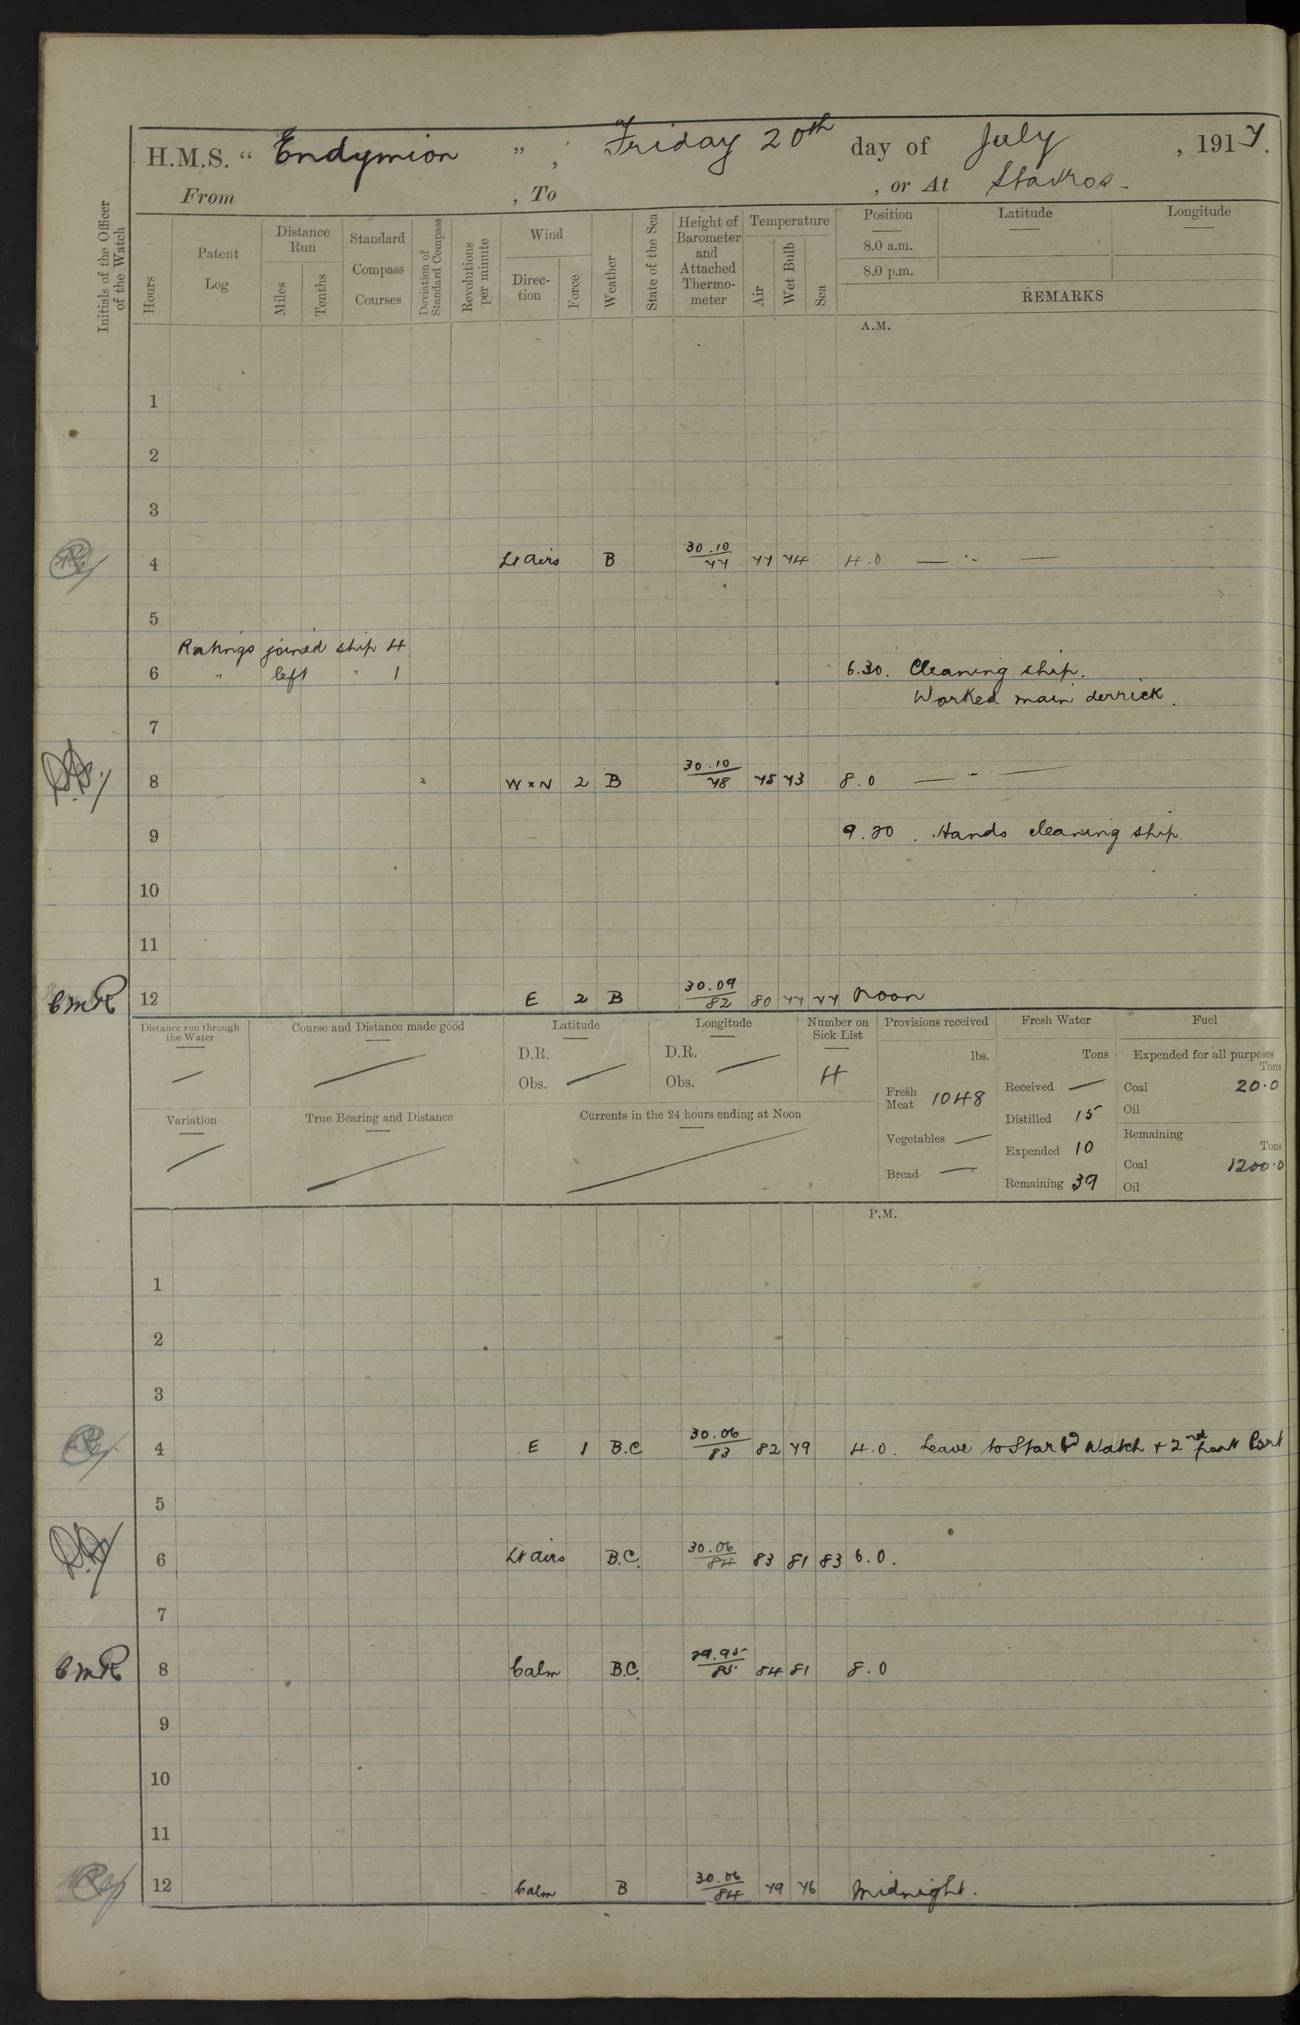 H.M.S. “ Endymion ” , Friday 20th day of July , 1917.
From , To , or At Stavros.
Initials of the Officer of the Watch
Hours
Patent Log
Distance Run
Miles
Tenths
Standard Compass Courses
Deviation of Standard Compass
Revolutions per minute
Wind
Direction
Force
Weather
State of the Sea
Height of Barometer and Attached Thermometer
Temperature
Air
Wet Bulb
Sea
Position Latitude Longitude
8.0 a.m.
8.0 p.m.
REMARKS
A.M.
1
2
3
4 Lt airs B 30.10/77 77 74 4.0 — " —
5
Ratings joined ship 4
6 " left " 1 6.30. Cleaning ship.
Worked main derrick.
7
8 W x N 2 B 30.10/78 75 73 8.0 — " —
9 9.20. Hands cleaning ship
10
11
CMR 12 E 2 B 30.09/82 80 77 77 Noon
Distance run through the Water —
Course and Distance made good —
Latitude D.R. Obs. —
Longitude D.R. — Obs.
Number on Sick List 4
Provisions received lbs.
Fresh Meat 1048
Vegetables —
Bread —
Fresh Water Tons
Received —
Distilled 15
Expended 10
Remaining 39
Fuel
Expended for all purposes Tons
Coal 20.0
Oil
Remaining Tons
Coal 1200.0
Oil
Variation —
True Bearing and Distance —
Currents in the 24 hours ending at Noon —
P.M.
1
2
3
4 E 1 B.C 30.06/83 82 79 4.0. Leave to Starbd Watch + 2nd part Port
5
6 Lt airs B.C. 30.06/84 83 81 83 6.0.
7
CMR 8 Calm B.C. 29.95/85 84 81 8.0
9
10
11
12 Calm B 30.06/84 79 76 Midnight.